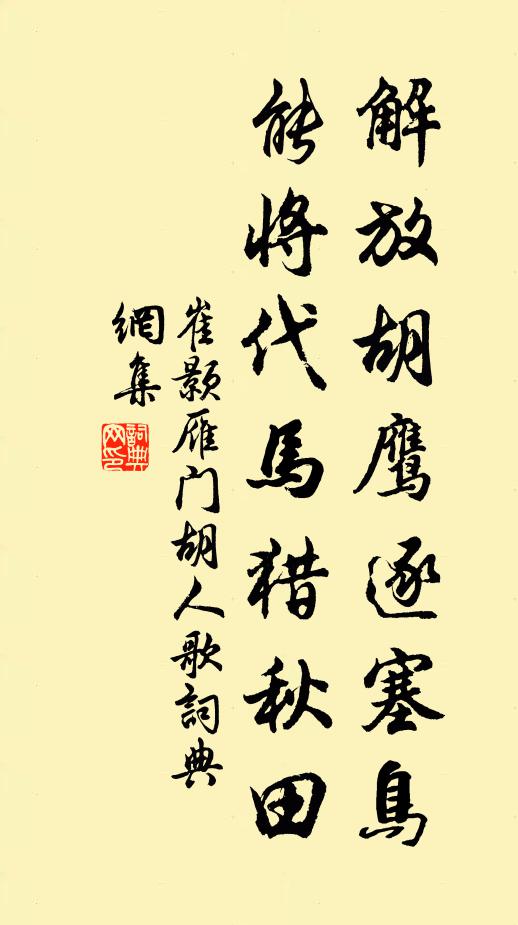 解放胡鹰逐塞鳥
能将代馬猎秋田
崔颢雁门胡人歌詞典
網集
詞典網印